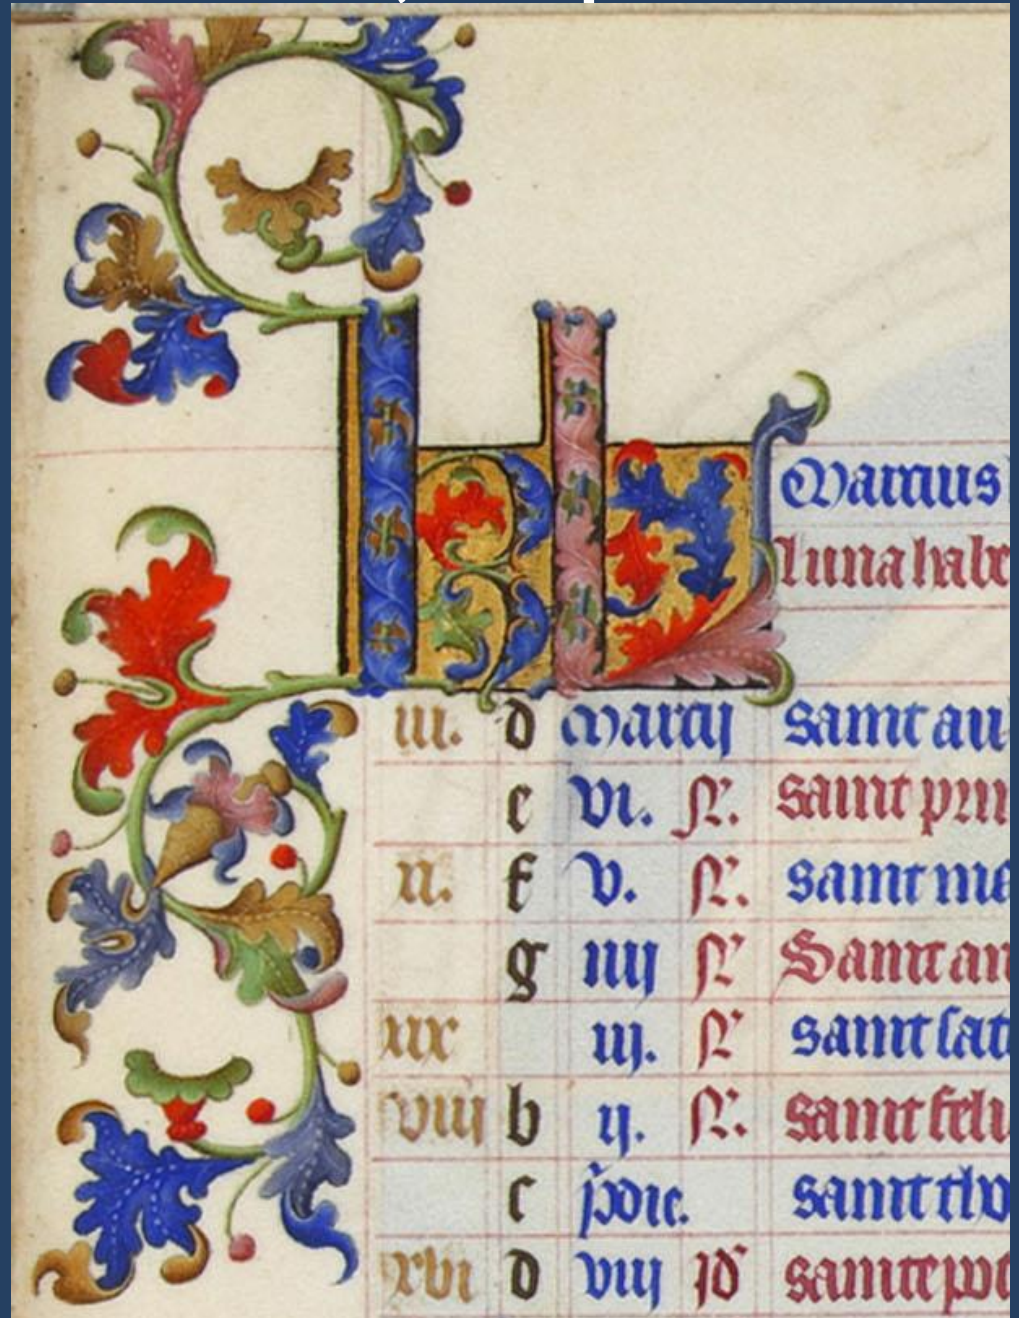 KL
Marcius
luna habe
iii. d marcij saint au
e vi. N. saint prin
xi. f v. N. saint me
g iiij N Saint an
xix iij. N saint fat
viij b ij. N. saint feli
c pdie. saint tho
xvi d viij id sainte po